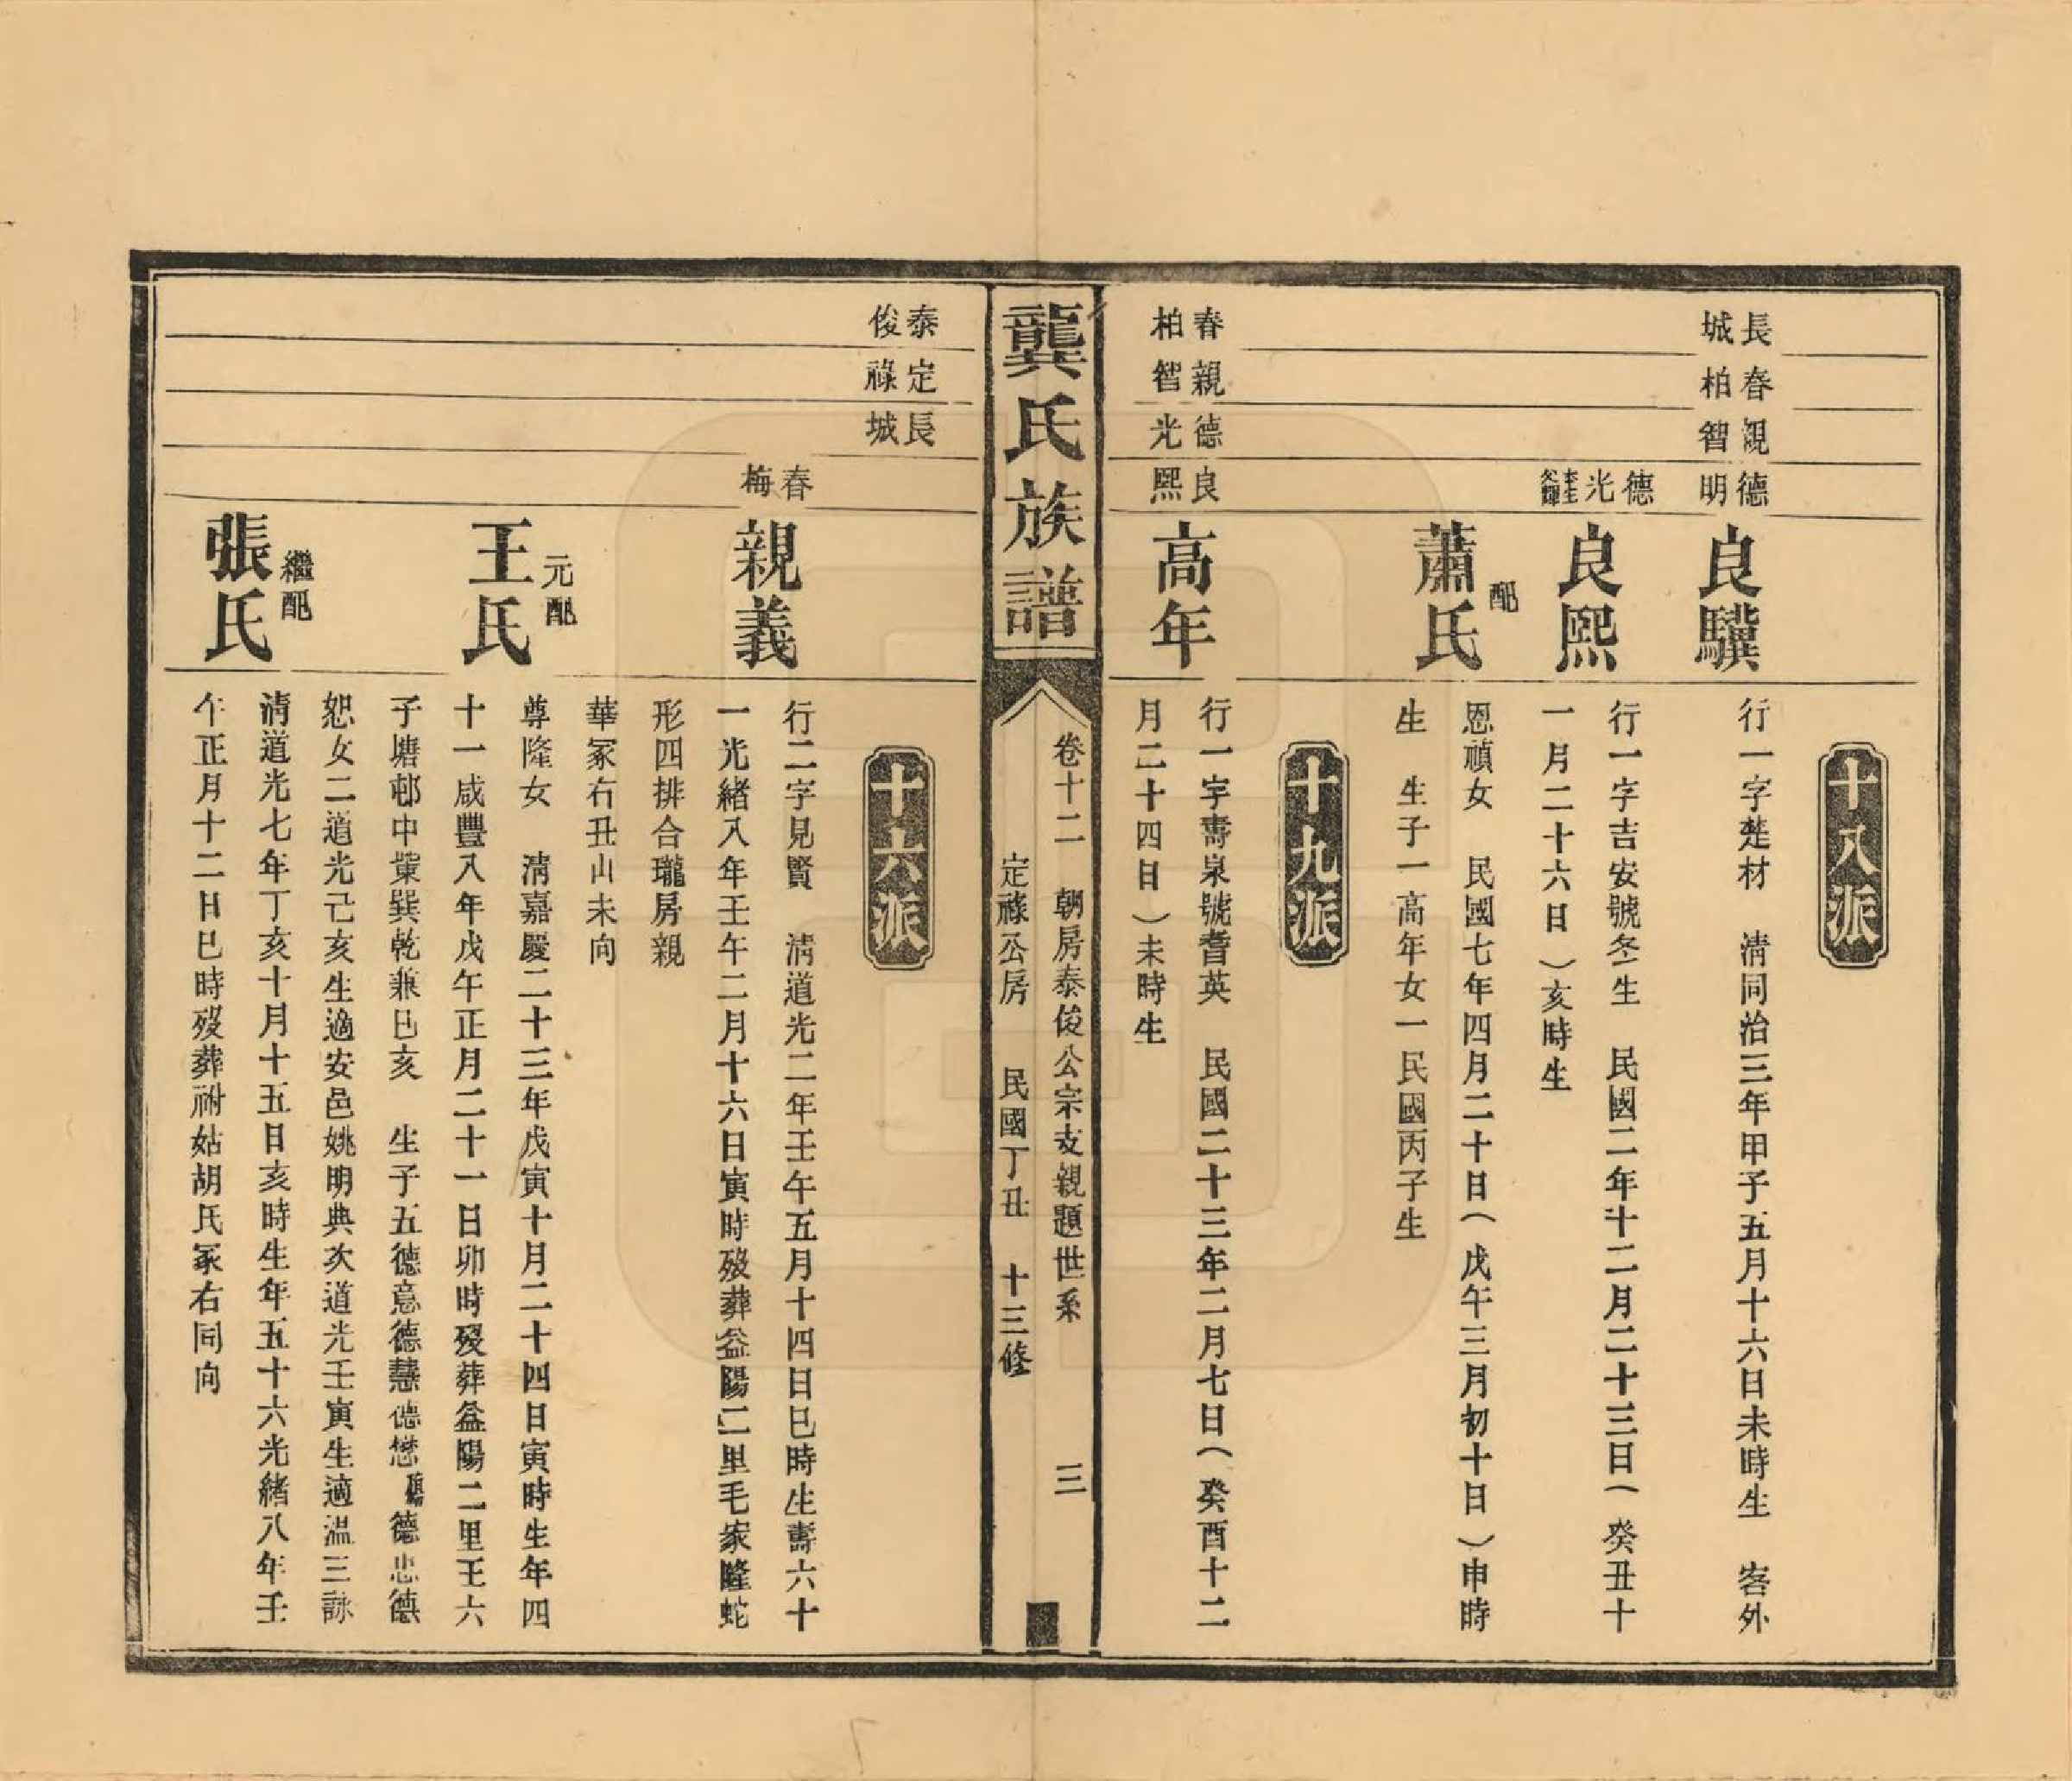 十八派
長城
春柏
親智
德明
良驥
行一字楚材　清同治三年甲子五月十六日未時生　客外
德光
良熙
行一字吉安號冬生　民國二年十二月二十三日（癸丑十
一月二十六日）亥時生
配
蕭氏
恩禎女　民國七年四月二十日（戊午三月初十日）申時
生　生子一高年女一民國丙子生
十九派
春柏
親智
德光
良熙
高年
行一字壽泉號耆英　民國二十三年二月七日（癸酉十二
月二十四日）未時生
龔氏族譜
卷十二　朝房泰俊公宗支親題世系　三
定祿公房　民國丁丑　十三修
十六派
泰俊
定祿
長城
春梅
親義
行二字見賢　清道光二年壬午五月十四日巳時生壽六十
一光緒八年壬午二月十六日寅時歿葬益陽二里毛家隆蛇
形四排合瓏房親
華冢右丑山未向
元配
王氏
尊隆女　清嘉慶二十三年戊寅十月二十四日寅時生年四
十一咸豐八年戊午正月二十一日卯時歿葬益陽二里王六
子塘邨中業巽乾兼巳亥　生子五德意德慧德懋　德忠德
恕女二道光己亥生適安邑姚明典次道光壬寅生適溫三詠
繼配
張氏
清道光七年丁亥十月十五日亥時生年五十六光緒八年壬
午正月十二日巳時歿葬祔姑胡氏冢右同向